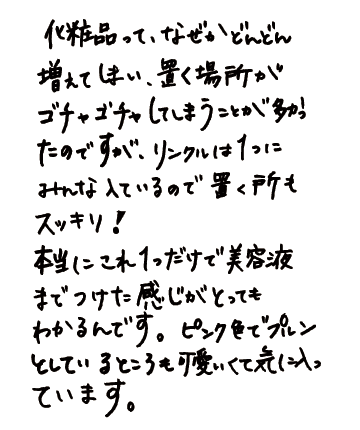 化粧品って、なぜかどんどん
増えてしまい、置く場所が
ゴチャゴチャしてしまうことが多かっ
たのですが、リンクルは1つに
みんな入っているので置く所も
スッキリ!
本当にこれ1つだけで美容液
までつけた感じがとっても
わかるんです。ピンク色でプルン
としているところも可愛いくて気に入っ
ています。